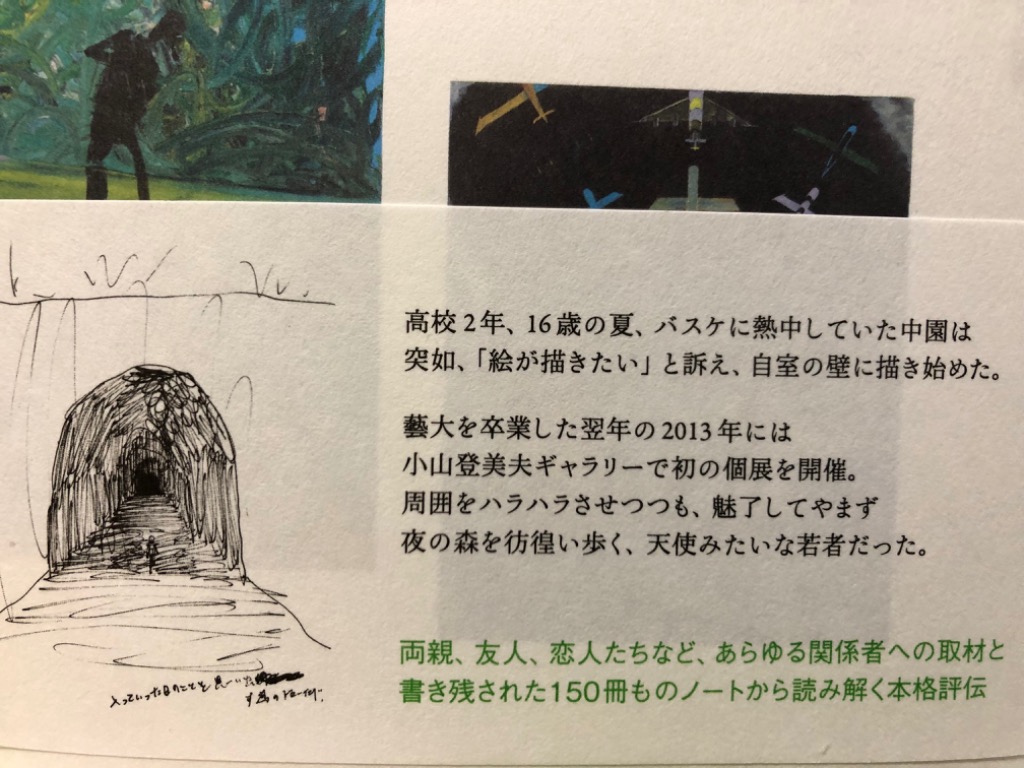 高校2年、16歳の夏、バスケに熱中していた中園は
突如、「絵が描きたい」と訴え、自室の壁に描き始めた。
藝大を卒業した翌年の2013年には
小山登美夫ギャラリーで初の個展を開催。
周囲をハラハラさせつつも、魅了してやまず
夜の森を彷徨い歩く、天使みたいな若者だった。
両親、友人、恋人たちなど、あらゆる関係者への取材と
書き残された150冊ものノートから読み解く本格評伝
入っていった日のことを思い